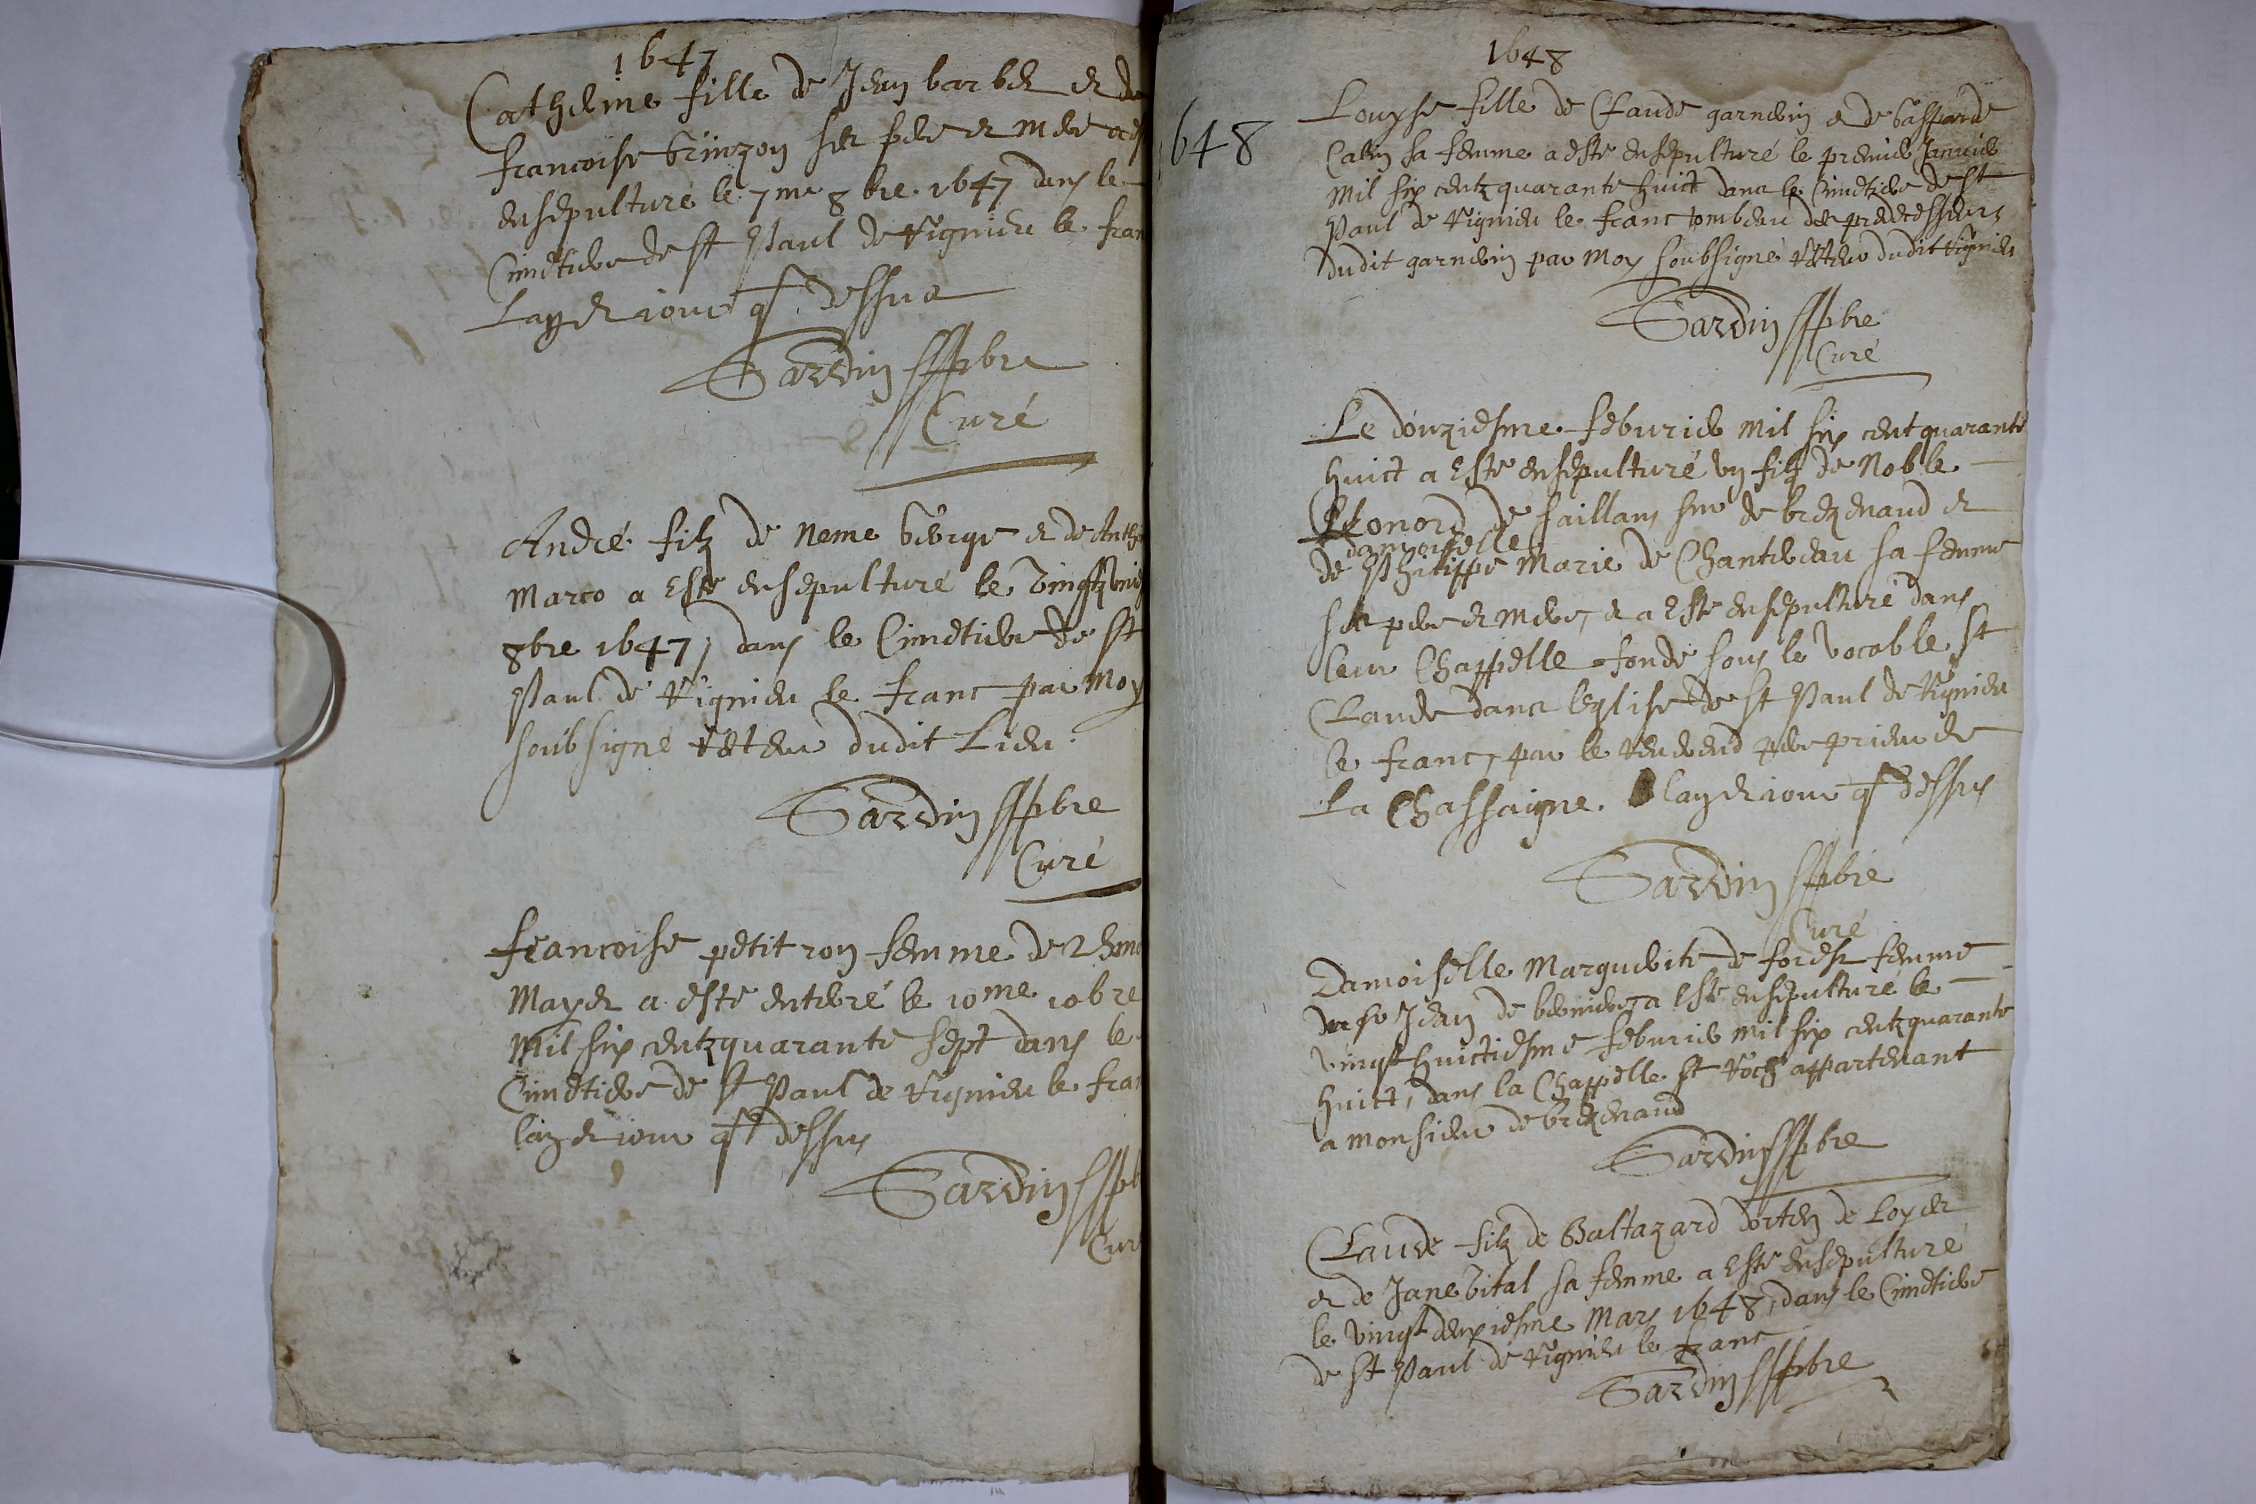 1647
Catherine fille de Jean barbet et de
francoise Grinzon ses pere et mere a es
ensepulturé le 7me 8bre 1647 dans le
Cimetiere de st Paul de Vignieu le fran
Lan et jour qf dessus
Sardin pbre
Curé
André filz de Neme George et de Anth
Marco a Esté ensepulturé le vingt
8bre 1647, dans le Cimetiere de st
Paul de Vignieu le franc par Moy
soubsigné recteur dudit Lieu
Sardin pbre
Curé
francoise petit ron femme de Thom
Mayet a esté enteré le 10me 10bre
Mil six centz quarante sept dans le
Cimetiere de st Paul de Vignieu le fran
lan et jour qf dessus
Sardin pb
Cur
1648
648
Louyse fille de Claude garnerin et de Gasparde
Cabin sa femme a esté ensepulturé le premier Janvier
Mil six centz quarante huict dans le Cimetiere de st
Paul de Vignieu le franc tombeau des predecesseurs
dudit garnerin par Moy soubsigné recteur dudit Vignieu
Sardin pbre
Curé
Le douziesme feburier Mil six cent quarante
huict a Esté ensepulturé un filz de Noble
Leonord de saillans sieur de brezenaud et
damoiselle
de Philippe Marie de Chantereau sa femme
ses pere et mere, et a Esté ensepulturé dans
leur Chappelle fondé sous le vocable st
Claude dans leglise de st Paul de Vignieu
le franc, par le reverend pere prieur de
La Chassaigne. lan et jour qf dessus
Sardin pbre
Curé
Damoiselle Marguerite de forest femme
de sr Jean de bernieres a Esté ensepulturé le
vingt huictiesme feburier mil six centz quarante
huict, dans la Chappelle st roch appartenant
a monsieur de brezenaud
Sardin pbre
Claude filz de Baltazard dorten de Loyet
et de Jane Vital sa femme a Esté ensepulturé
le vingt deuxiesme Mars 1648, dans le Cimetiere
de st Paul de Vignieu le franc
Sardin pbre